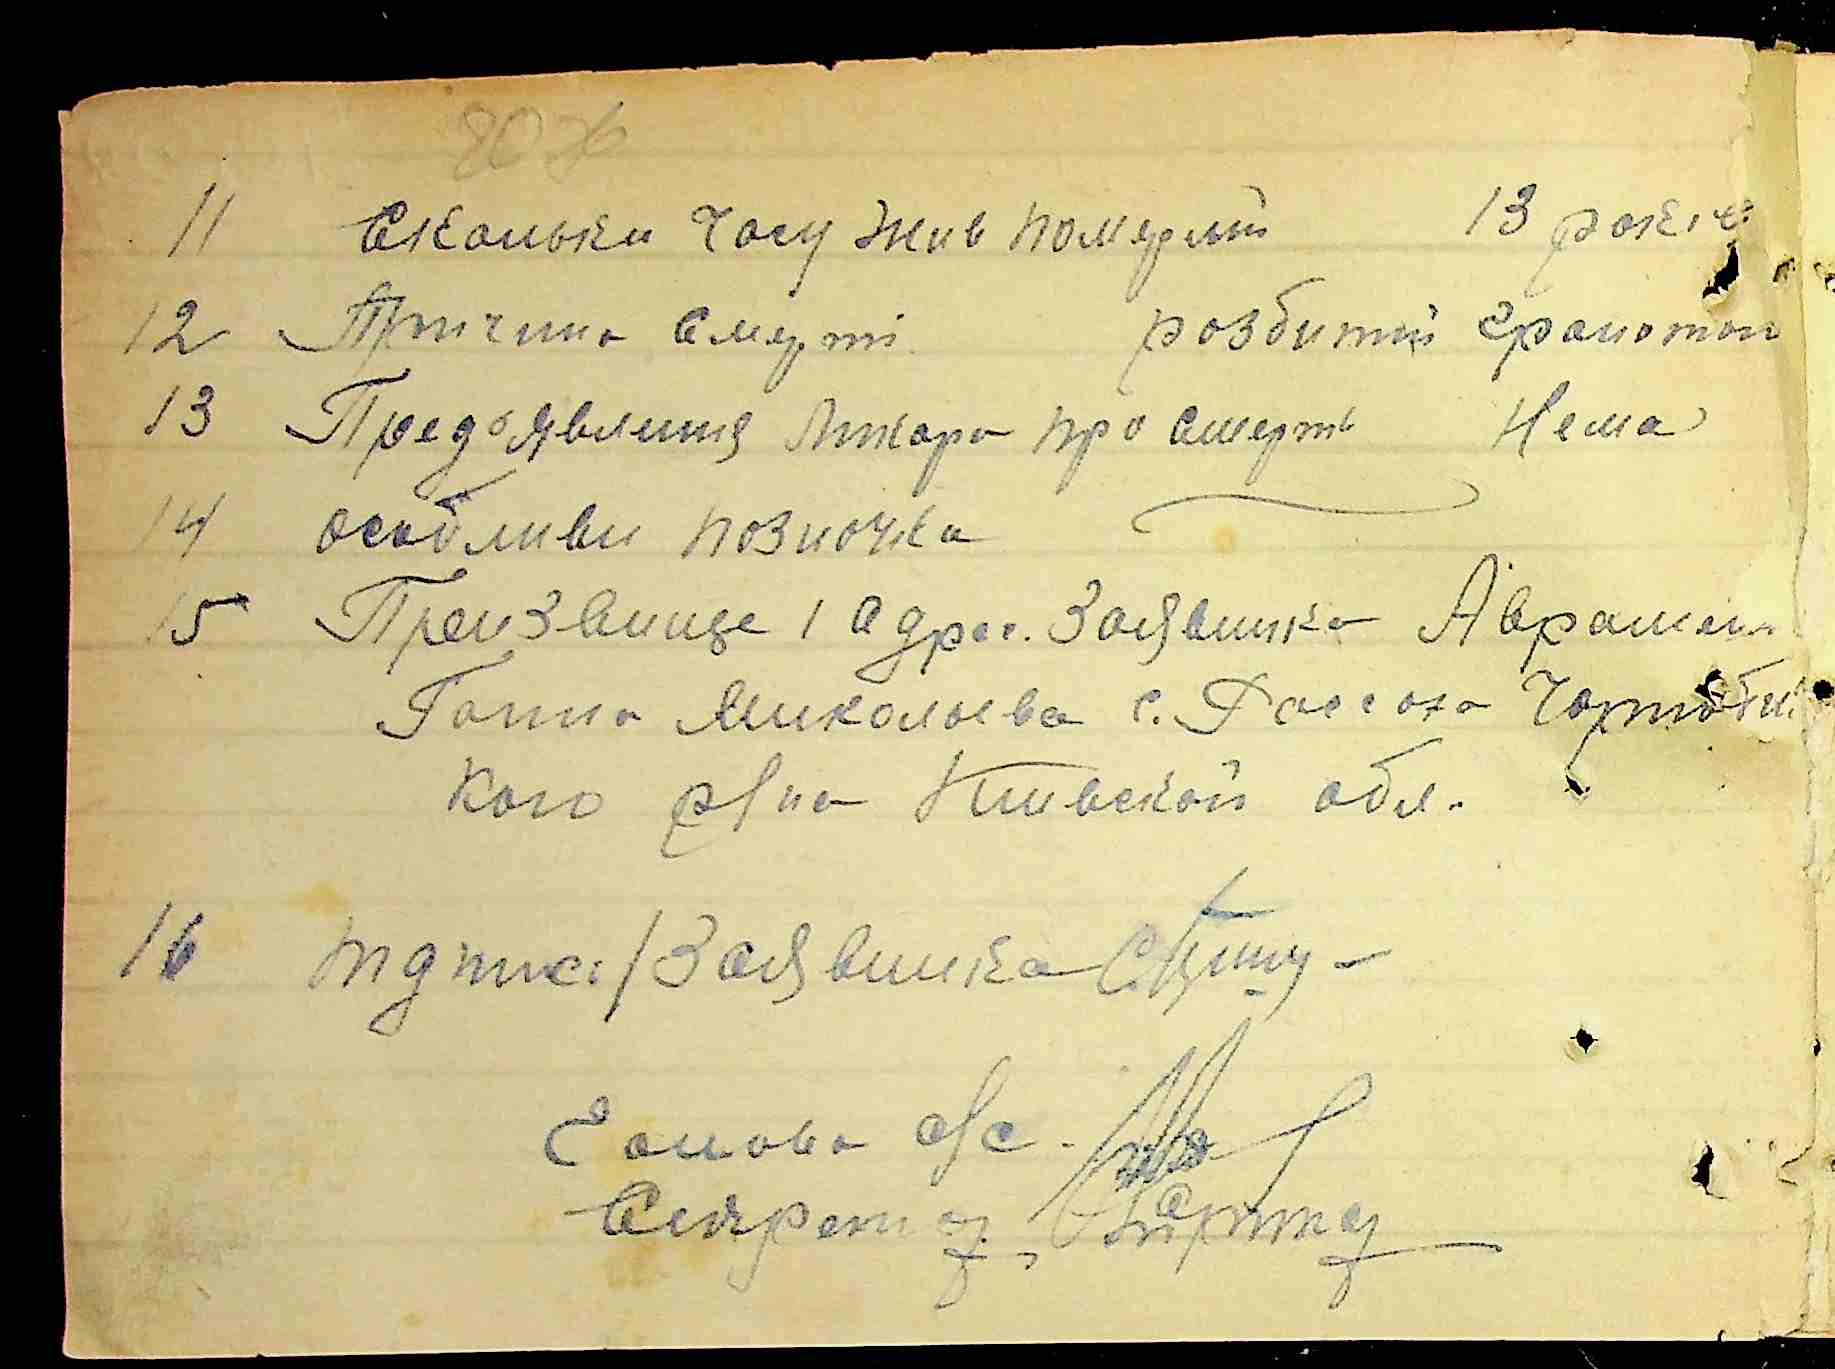 11 Сколькы часу жив померлий 13 років
12 Причина смерті розбитий гранатой
13 Предоявлення лікара про смерть Нема
14 особливи позночка
15 Преизвище і адрес. Заявника Авраменко
Ганна Миколаева с. Рассоха Чорнобил
кого р/на Київской обл.
16 підпис /Заявника
Голова с/с.
Секретар,